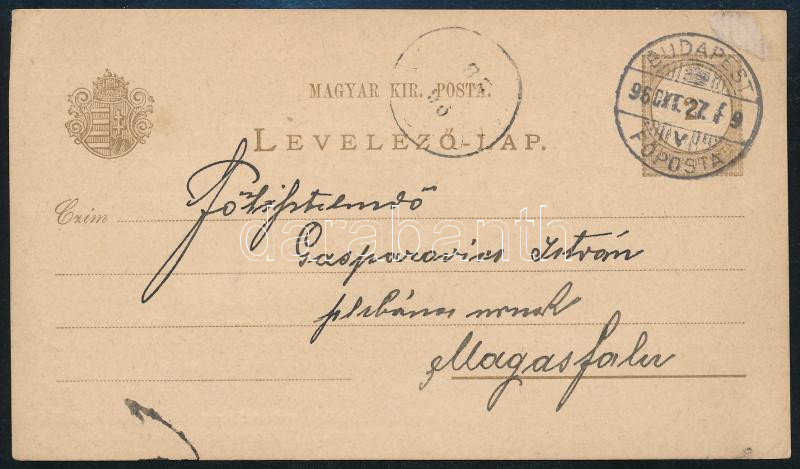 MAGYAR KIR. POSTA.
LEVELEZŐ-LAP.
BUDAPEST
96 OKT. 27. 9
FŐPOSTA
Czim
Főtisztelendő
Gasparavics István
plébános urnak
Magasfalu
darabanth